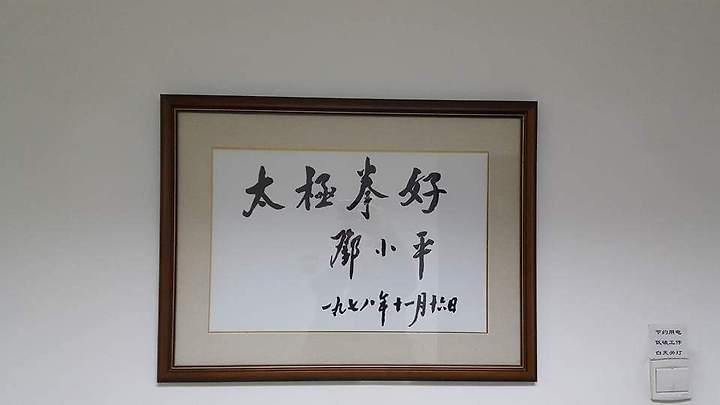 太極拳好
鄧小平
一九七八年十一月十六日
节约用电
低碳工作
白天关灯